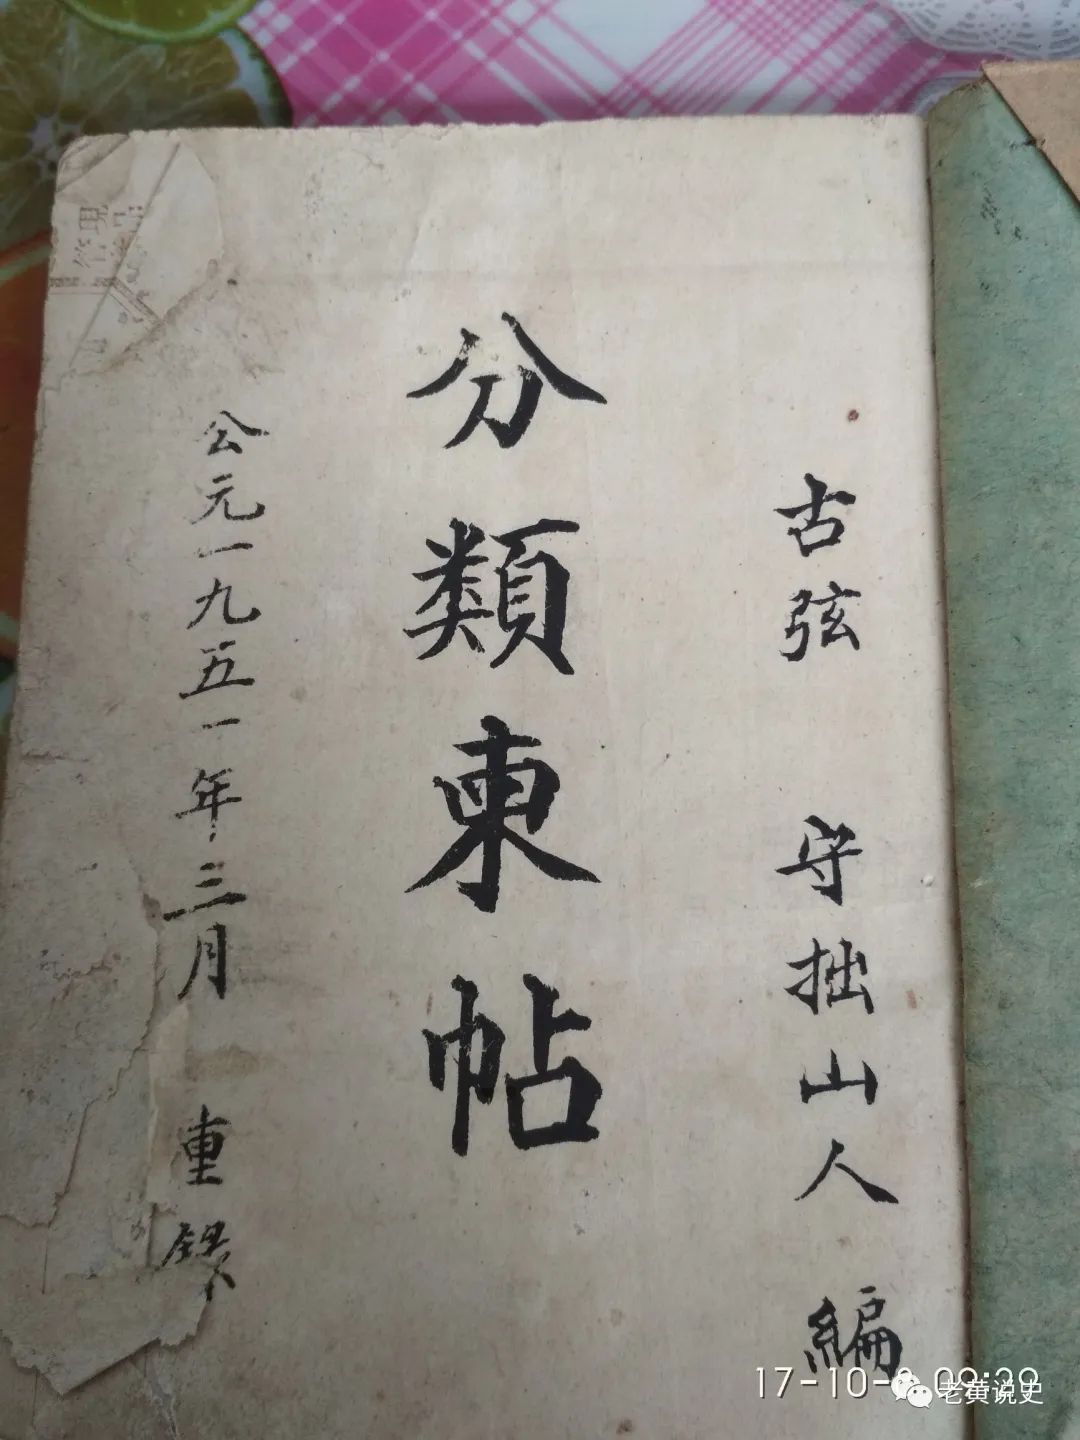 古弦 守拙山人 編
分類柬帖
公元一九五一年三月 重錄
17-10- 09:39
老黄说史